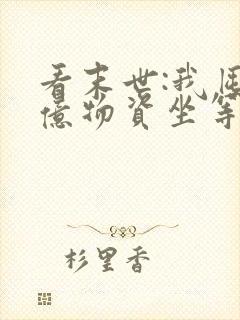 看末世:我囤
億物資坐等
杉里香